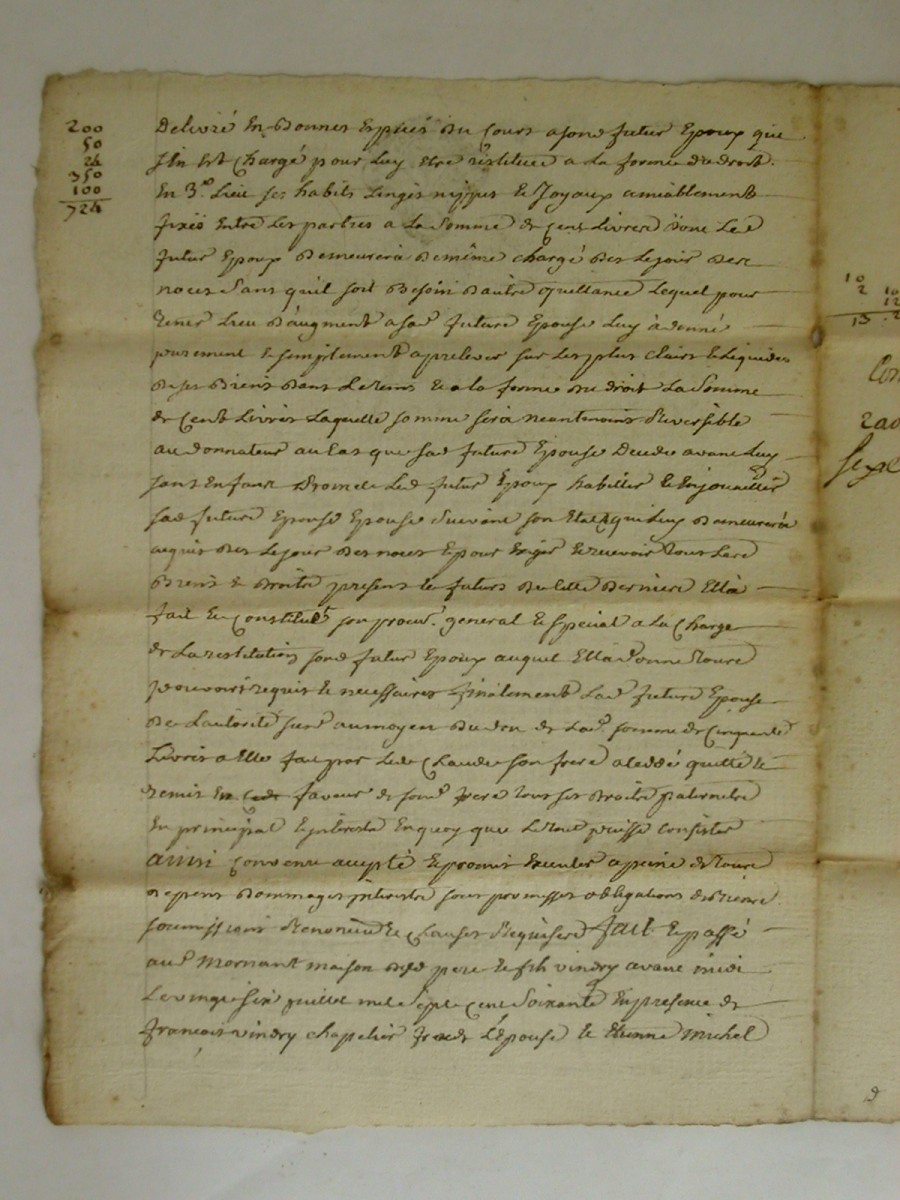 200
50
24
350
100
724
Delivré En Bonnes Espèces du Cours a son futur Epoux qui
s'En est Chargé pour luy Etre réstituée a la forme du droit.
En 3.e Lieu ses habits Linges nippes et Joyaux amiablement
fixés Entre Les parties a La Somme de Cent Livres dont Led
futur Epoux Demeurera De même chargé Des le jour des
noces Sans quil soit Besoin d'autre quittance Lequel pour
tenir Lieu d'augment a sad future Epouse Luy à donné
purement et simplement a prelever sur Les plus clairs et Liquides
de ses Biens dans Le tems et a la forme du droit La Somme
de Cent Livres Laquelle somme sera neantmoins Reversible
aud donnateur au Cas que sad future Epouse Decede avant Luy
sans Enfant Promet Led futur Epoux habiller et Enjoualler
sad future Epouse Epouse Suivant son Etat qui Luy Demeurera
acquis des le jour des noces Et pour Exiger et recevoir tous les
Biens et droits presents et futurs de cette derniere Elle a
fait et Constitué son procur. general et special a la Charge
de La restitution sond futur Epoux auquel Elle a donne toute
pouvoirs requis et necessaires finalement Lad future Epouse
de L'autorité susd au moyen du don de Lad somme de Cinquante
Livres a Elle fait par Led Claude son frere a Cedé quitté et
remis En faveur de sond frere tous ses droits paternels
En principal Et interets En quoy que Le tout puisse Consister
ainsi Convenu accepté Et promis Executer a peine de toutes
depens Dommages interets sous promesses obligations de Biens
soumissions Renonciat et Clauses Requises fait et passé
aud Mornant maison desd pere et fils vindry avant midi
Le vingt six juillet mil Sept Cent Soixante En presence de
francois vindry chapelier frere de L'Epouse et Etienne Michel
10
2
13